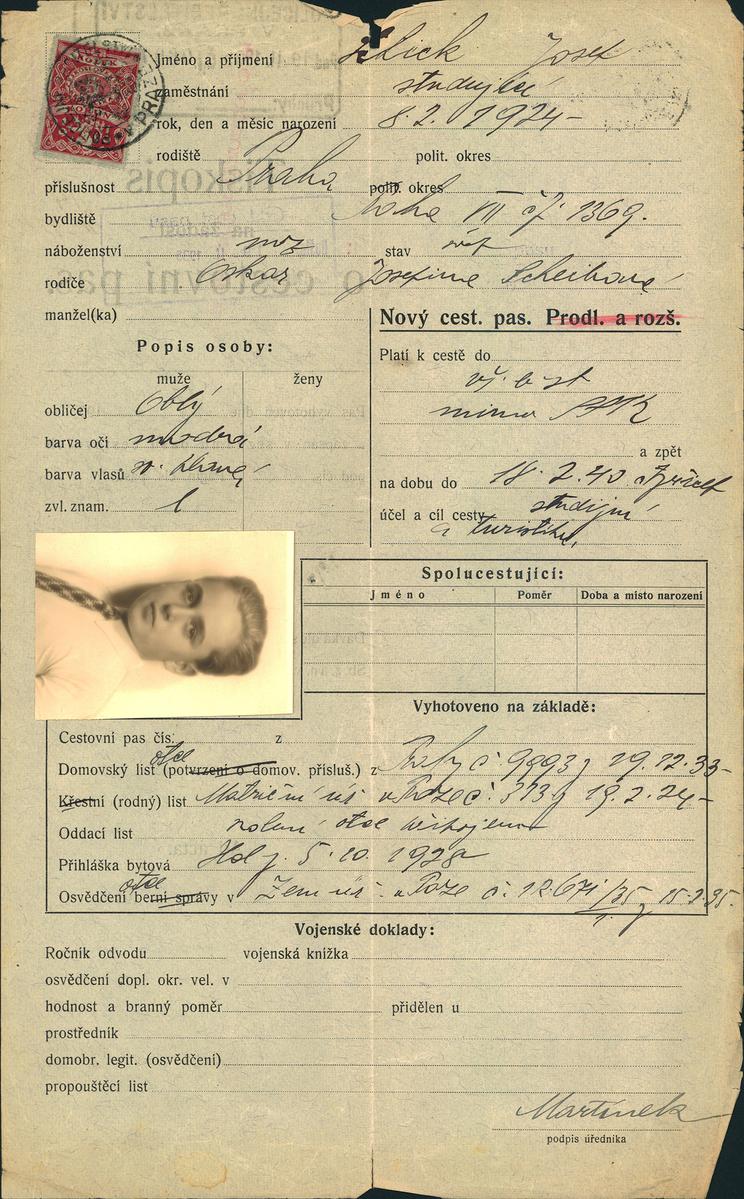 Jméno a příjmení Josef
zaměstnání studující
rok, den a měsíc narození 8. 2. 1924 -
rodiště Praha polit. okres
příslušnost polit. okres
bydliště Praha VII čp. 1369.
náboženství moz stav svob
rodiče Oskar Josefina Scheibová
manžel(ka)
Nový cest. pas. Prodl. a rozš.
Popis osoby:
Platí k cestě do
muže ženy
vš. e. st
obličej Oblý
mimo
barva očí modrá
a zpět
barva vlasů
na dobu do 18. 2. 40
zvl. znam.
účel a cíl cesty studijní
a turistika
Spolucestující:
Jméno Poměr Doba a místo narození
Vyhotoveno na základě:
Cestovní pas čís. z
otce
Domovský list (potvrzení o domov. přísluš.) z Prahy č. 9993 z 19. 12. 33 -
Křestní (rodný) list Matriční úř. v Praze č. 373 z 19. 2. 24 -
Oddací list otce
Přihláška bytová 5. 10. 1928
otce
Osvědčení berní správy v Zem úř. v Praze č. 12671/35 z 15. 2. 35.
Vojenské doklady:
Ročník odvodu vojenská knížka
osvědčení dopl. okr. vel. v
hodnost a branný poměr přidělen u
prostředník
domobr. legit. (osvědčení)
propouštěcí list
Martinek
podpis úředníka